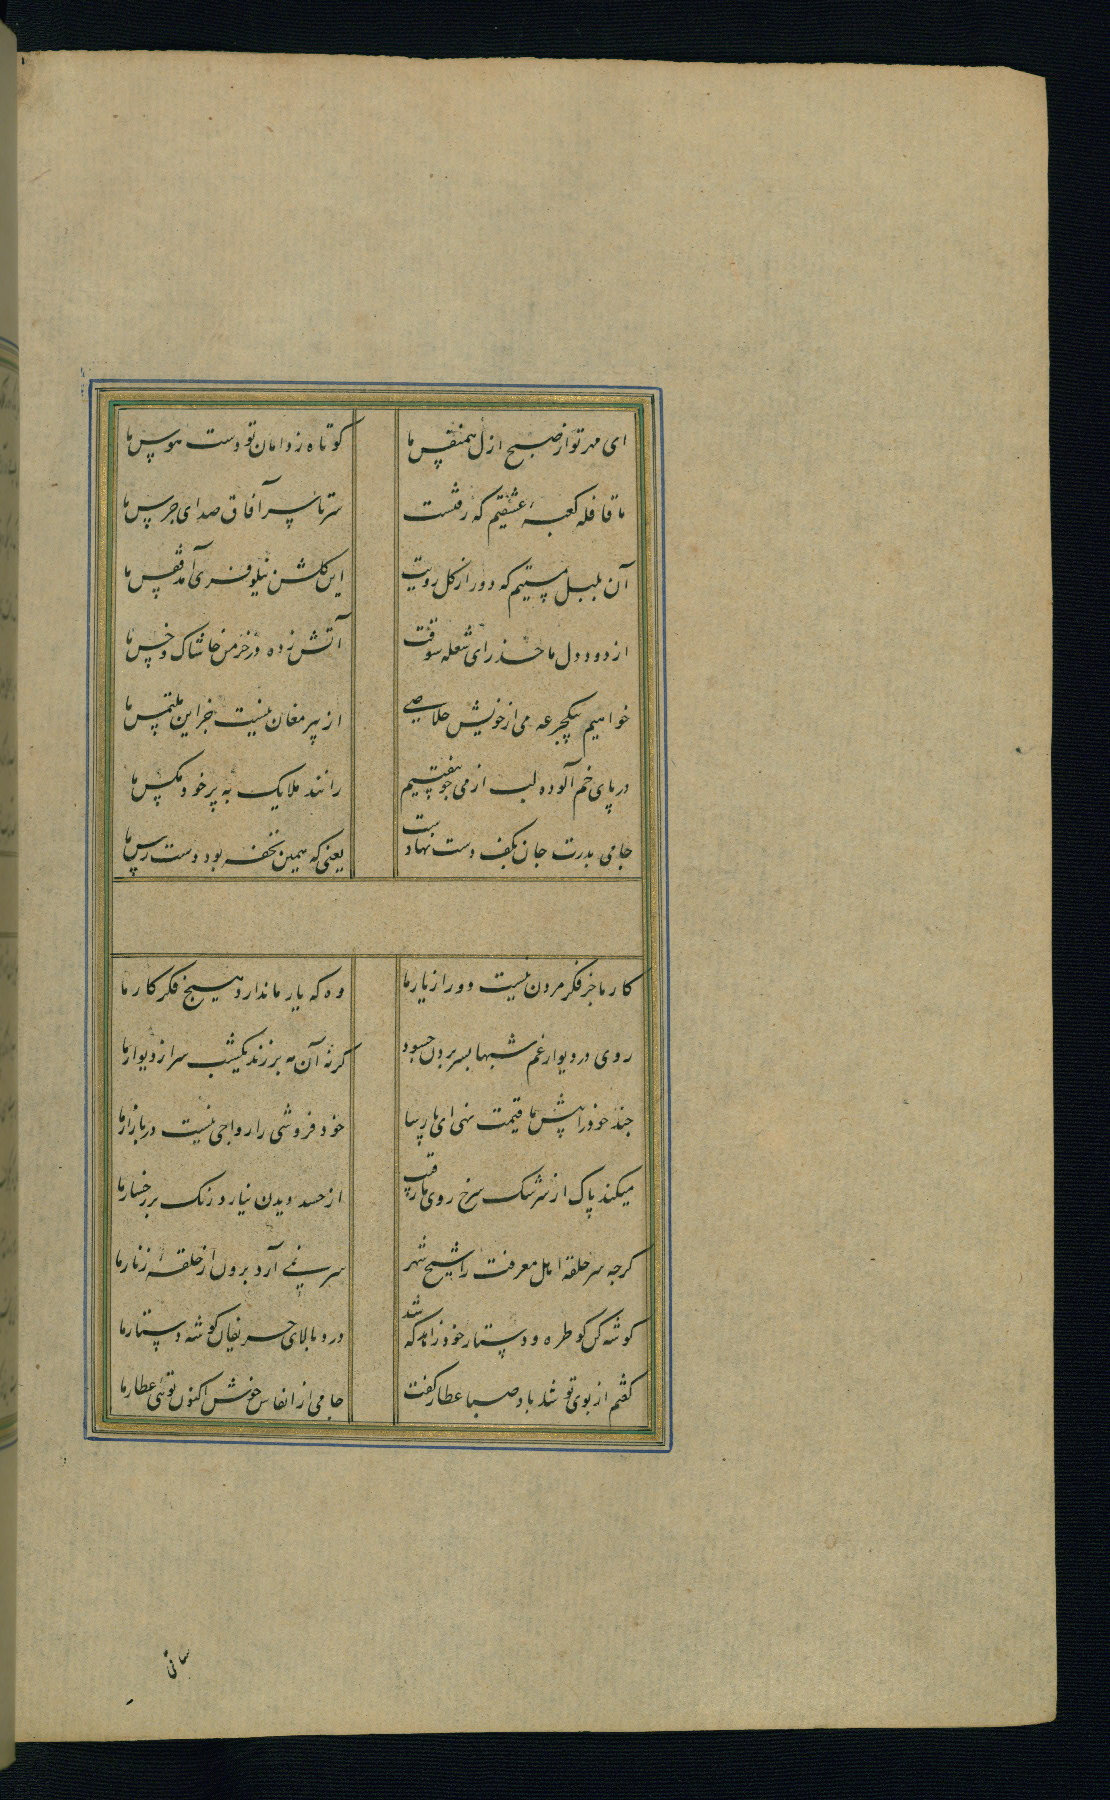 ای مهر تو از صبح ازل همنفس ما کوتاه ز دامان تو دست هوس ما
ما قافله کعبهٔ عشقیم که رفتست سرتاسر آفاق صدای جرس ما
آن بلبل مستیم که دور از گل رویت این گلشن نیلوفری آمد قفس ما
از دود دل ما حذر ای شعله شوقت آتش زده در خرمن خاشاک و خس ما
خواهیم بیکجرعه می از خویش خلاصی از پیر مغان نیست جز این ملتمس ما
در پای خم آلوده لب از می چو بیفتیم رانند ملایک به پر خود مکس ما
جامی بدرت جان بکف دست نهادست یعنی که همین تحفه بود دست رس ما
کار ما جز فکر مردن نیست دور از یار ما وه که یار ما ندارد هیچ فکر کار ما
روی در دیوار غم شبها بسر بردن چسود کر نه آن مه بر زند یکشب سر از دیوار ما
چند خود را پیش ما قیمت نهی ای پارسا خود فروشی را رواجی نیست در بازار ما
میکند پاک از سرشک سرخ روی ما رقیب از حسد دیدن نیارد رنک بر رخسار ما
کرچه سر حلقه اهل معرفت را شیخ شهر سر نمی آرد برون از حلقهٔ زنار ما
کوشه کن کو طره و دستار خود زاهد که شد در و بالای حریفان کوشه دستار ما
کفتم از بوی تو شد باد صبا عطار کفت جامی از انفاس خوش اکنون توئی عطار ما